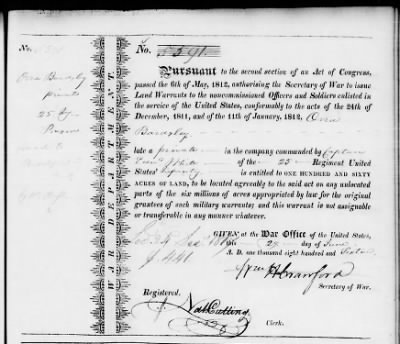 No.
No. 591.
Ora Beardsley
private
25
PURSUANT to the second section of an Act of Congress,
passed the 6th of May, 1812, authorising the Secretary of War to issue
Land Warrants to the noncommissioned Officers and Soldiers enlisted in
the service of the United States, conformably to the acts of the 24th of
December, 1811, and of the 11th of January, 1812, Ora
Beardsley
late a private in the company commanded by Captain
of the 25 Regiment United
States' Infantry is entitled to ONE HUNDRED AND SIXTY
ACRES OF LAND, to be located agreeably to the said act on any unlocated
parts of the six millions of acres appropriated by law for the original
grantees of such military warrants; and this warrant is not assignable
or transferable in any manner whatever.
GIVEN at the War Office of the United States,
this 24 day of June
A. D. one thousand eight hundred and
Wm H Crawford
Secretary of War.
Registered.
Nat Cutting
Clerk.
WAR DEPARTMENT.